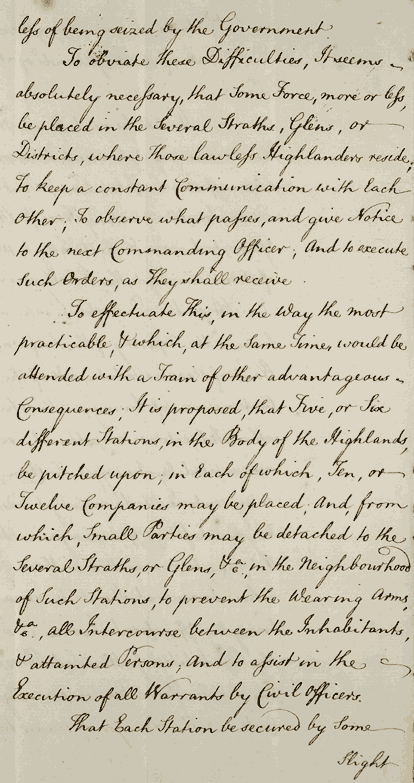 less of being seized by the Government.
To obviate these Difficulties, It seems
absolutely necessary, that Some Force, more or less,
be placed in the Several Straths, Glens, or
Districts, where those lawless Highlanders reside,
To keep a constant Communication with Each
Other; To observe what passes, and give Notice
to the next Commanding Officer; And to execute
such Orders, as They shall receive.
To effectuate This, in the way the most
practicable, & which, at the Same Time, would be
attended with a Train of other advantageous
Consequences; It is proposed, that Five, or Six
different Stations, in the Body of the Highlands,
be pitched upon; in Each of which, Ten, or
Twelve Companies may be placed; And, from
which, Small Parties may be detached to the
Several Straths, or Glens, &ca, in the Neighbourhood
of Such Stations, to prevent the Wearing Arms,
&ca., all Intercourse between the Inhabitants,
& attainted Persons; And to assist in the
Execution of all Warrants by Civil Officers.
That Each Station be secured by Some
Slight